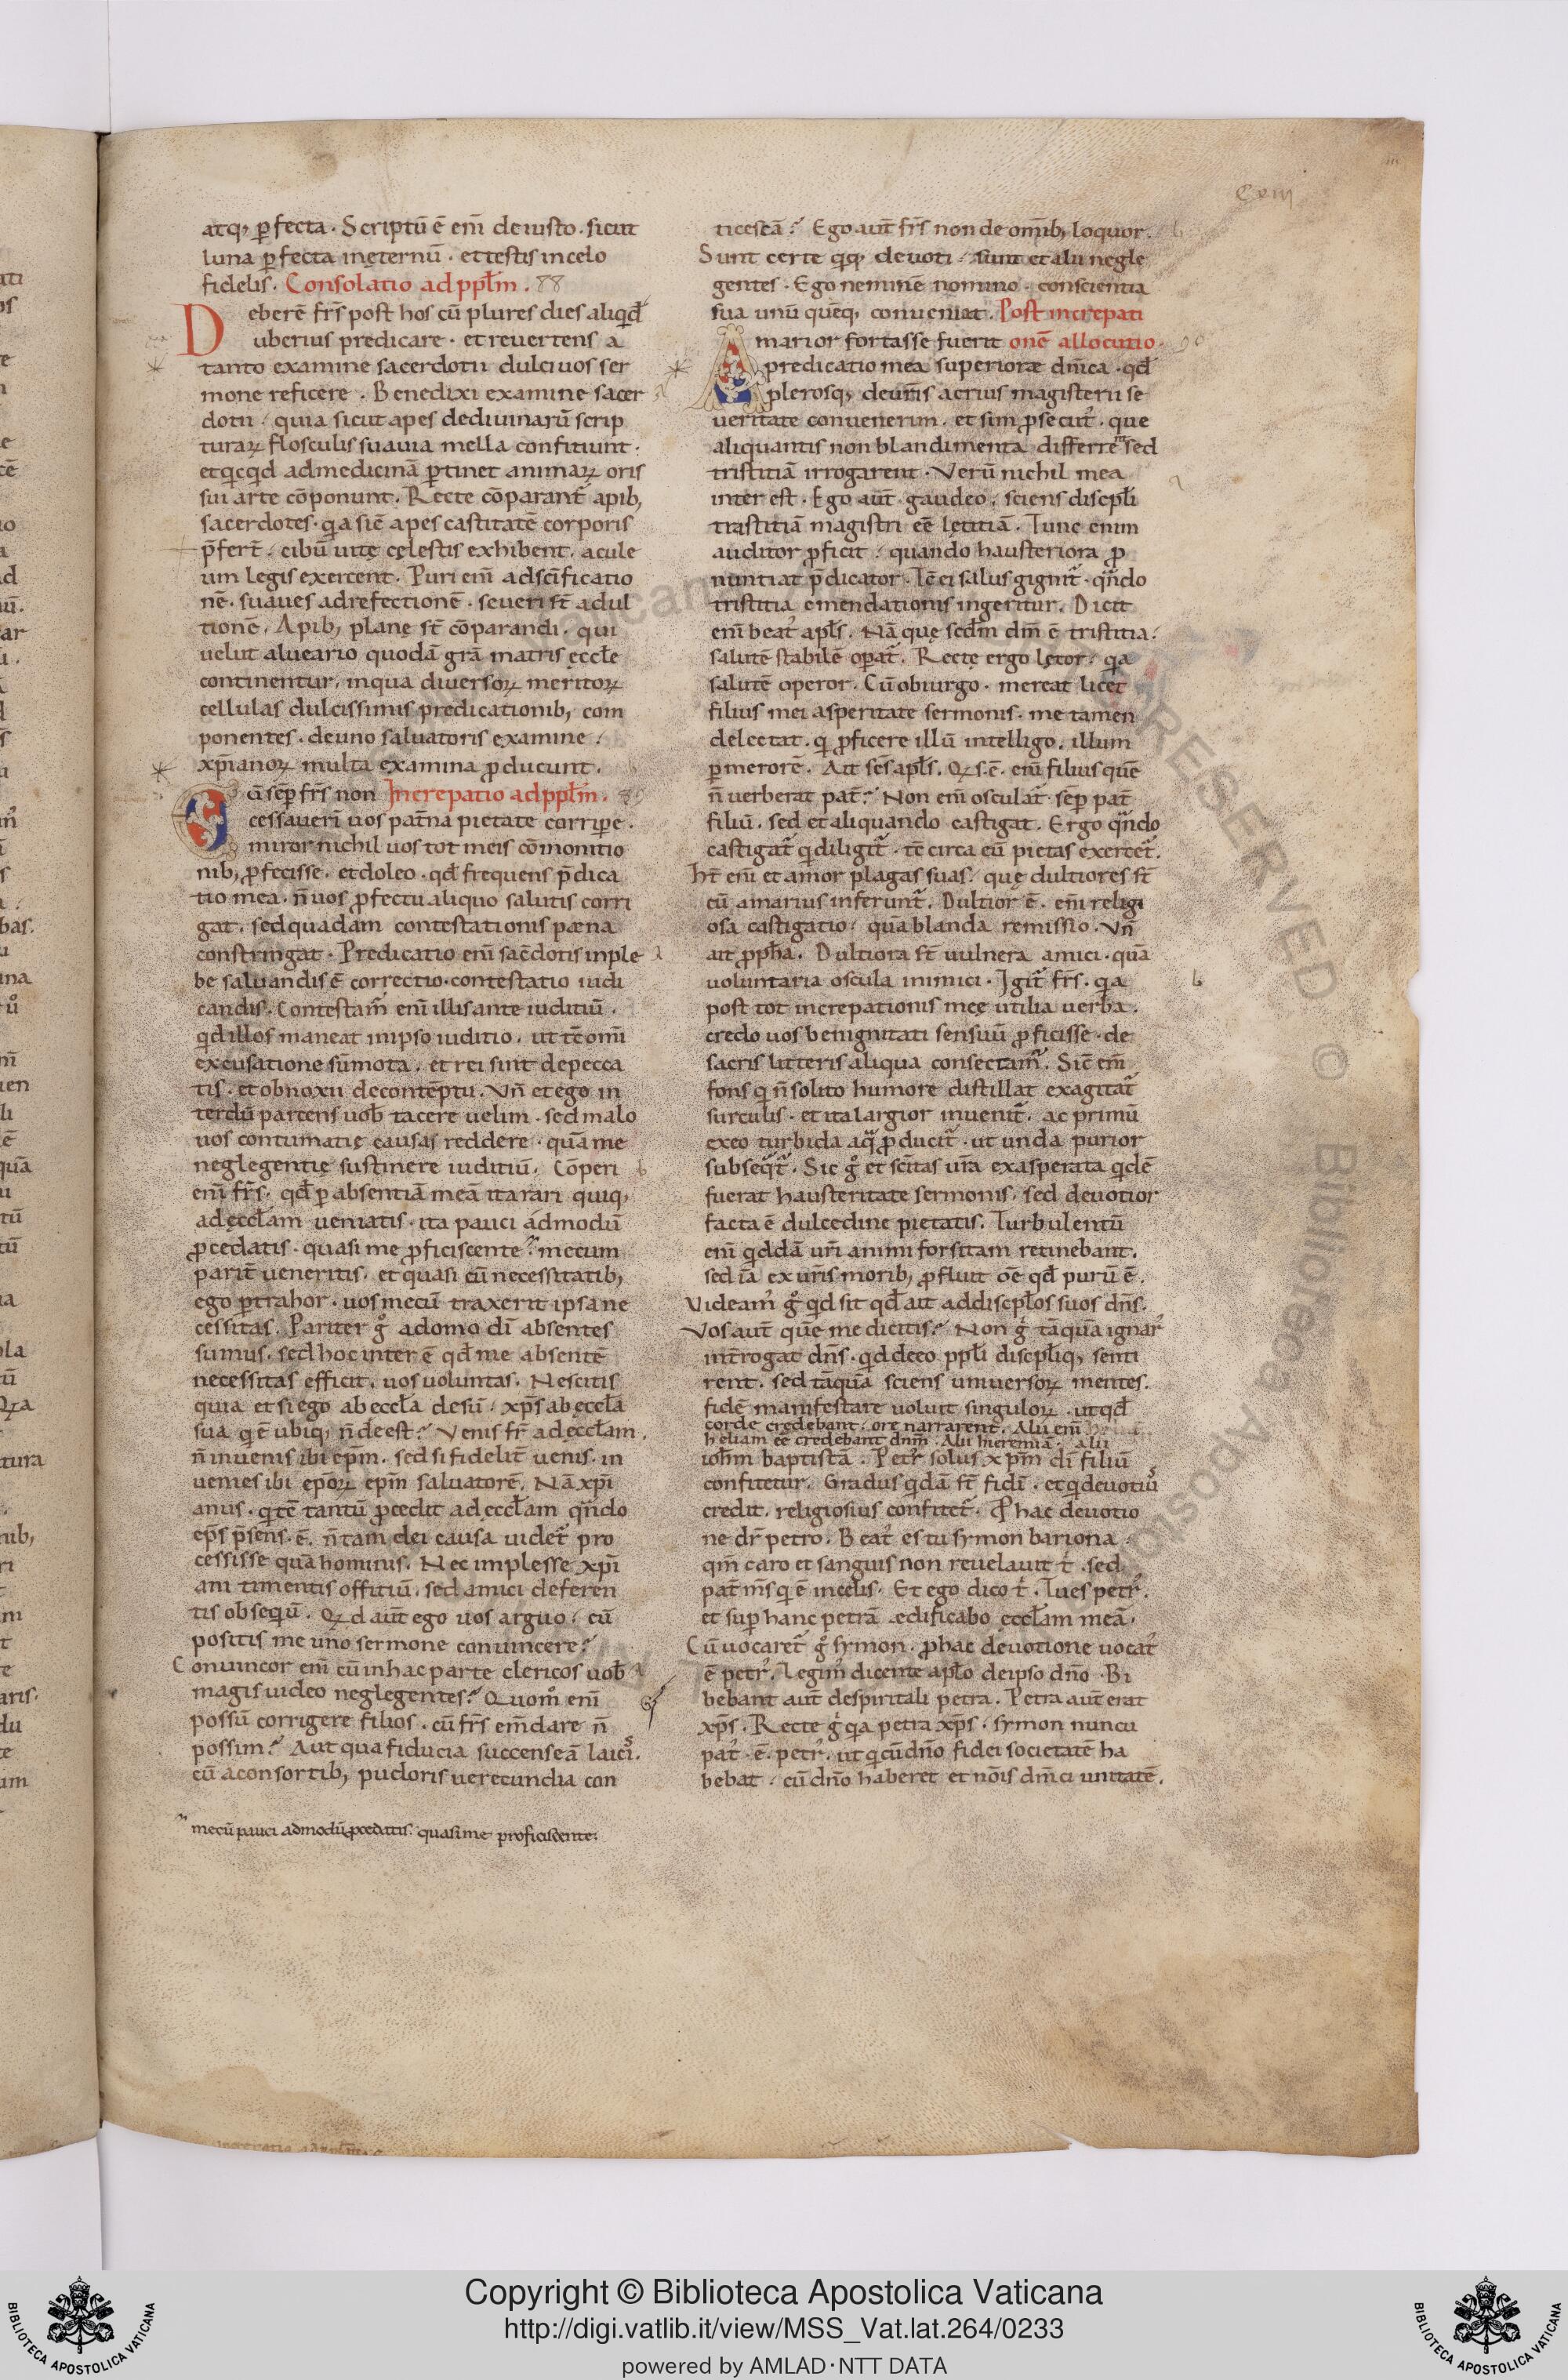 Cxiij
atq; ꝑfecta. Scriptū ē eni̅ de iusto. sicut
luna ꝑfecta in ęternū. et testis in celo
fidelis. Consolatio ad ppl̅m. 88
Deberē frs̅ post hos cū plures dies aliqd̅
uberius predicare. et revertens a
tanto examine sacerdotii dulci uos ser
mone reficere. Benedixi examine sacer
dotii quia sicut apes de diuinarū scrip
turaꝝ flosculis suauia mella conficiunt.
et qcqd ad medicinā ꝑtinet animaꝝ oris
sui arte cōponunt. Recte cōparant̄ apib;
sacerdotes. qa sic̄ apes castitatē corporis
p̄fert̄. cibū uitę cęlestis exhibent. acule
um legis exercent. Puri eni̅ ad scīficatio
nē. suaues ad refectionē. seueri st̄ ad ul
tionē. Apib; plane st̄ cōparandi. qui
uelut alueario quodā grā matris ęccłe
continentur. in qua diuersoꝝ meritoꝝ
cellulas dulcissimis predicationib; com
ponentes. de uno saluatoris examine.
xp̄ianoꝝ multa examina ꝓducunt.
Cū sēp frs̅ non Increpatio ad ppl̅m. 89
cessauerī uos pat̄na pietate corripe.
miror nichil uos tot meis cōmonitio
nib; ꝓfecisse. et doleo. qd̅ frequens p̄dica
tio mea. n̄ uos ꝓfectu aliquo salutis corri
gat. sed quadam contestationis pæna
constringat. Predicatio eni̅ sac̄dotis in ple
be saluandis ē correctio. contestatio iudi
candis. Contestam̄ eni̅ illis ante iuditiū.
qd illos maneat in ipso iuditio. ut tc̄ om̄i
excusatione sūmota. et rei sint de pecca
tis. et obnoxii de contēptu. Vn̄ et ego in
terdū parcens uob̄ tacere uelim. sed malo
uos contumatię causas reddere. quā me
neglegentię sustinere iuditiū. Cōperi
eni̅ frs̅. qd̅ ꝑ absentiā meā ita rari quiq;
ad ęccłam ueniatis. ita pauci admodū
ꝓcedatis. quasi me ꝓficiscente. mecum
parit̄ ueneritis. et quasi cū necessitatib;
ego ꝑtrahor. uos mecū traxerit ipsa ne
cessitas. Pariter g̊ a domo dī absentes
sumus. sed hoc inter ē qd̅ me absentē
necessitas efficit. uos uoluntas. Nescitis
quia et si ego ab eccła desū. xp̄s ab ęccła
sua. q ē ubiq; n̄ deest? Venis fr̄ ad ęccłam.
n̄ inuenis ibi ep̄m. sed si fidelit̄ uenis. in
uenies ibi ep̄oꝝ ep̄m saluatorē. Nā xp̄i
anus. q tc̄ tantū ꝓcedit ad ęccłam qn̄do
ep̄s p̄sens. ē. n̄ tam dei causa uidet̄ pro
cessisse quā hominis. Nec implesse xp̄i
ani timentis offitiū. sed amici deferen
tis obsequiū. Qd aut̄ ego uos arguo. cū
positis me uno sermone conuincere?
Conuincor eni̅ cū in hac parte clericos uob̄
magis uideo neglegentes? Quom̊ eni̅
possū corrigere filios. cū frs̅ em̄dare n̄
possim? Aut qua fiducia succenseā laicis.
cū a consortib; pudoris uerecundia con
mecū pauci admodū ꝓcedatis. quasi me proficiscente.
ticescā? Ego aut̄ frs̅ non de om̄ib; loquor.
Sunt certe qq; deuoti. sunt et alii negle
gentes. Ego neminē nomino. conscientia
sua unū quēq; conueniat. Post increpati
Amarior fortasse fuerit onē allocutio. 90
predicatio mea superioræ dn̄ica. qd̅
plerosq; de ur̄is acrius magisterii se
ueritate conuenerim. et sim ꝓsecut᾿. que
aliquantis non blandimenta differre sed
tristitiā irrogarent. Verū nichil mea
inter est. Ego aut̄ gaudeo. sciens discipl̅i
trastitiā magistri eē lętitiā. Tunc enim
auditor ꝓficit. quando hausteriora ꝓ
nuntiat p̄dicator. Tc̄ ei salus gignit̄. qn̄do
tristitia emendationis ingeritur. Dicit
eni̅ beat᾿ apl̅s. Nā quę scd̄m dm̄ ē tristitia.
salutē stabilē oꝑat̄. Recte ergo lętor. qa
salutē operor. Cū obiurgo. mereat licet
filius mei asperitate sermonis. me tamen
delectat. q ꝓficere illū intelligo. illum
ꝑ merorē. Ait sc̄s apl̅s. Qs. ē. eni̅ filius quē
n̄ uerberat pat̄? Non eni̅ osculat̄ sēp pat̄
filiū. sed et aliquando castigat. Ergo qn̄do
castigat̄ q diligit̄. tc̄ circa eū pietas exercet̄.
Ht̄ eni̅ et amor plagas suas. quę dultiores st̄
cū amarius inferunt̄. Dultior ē. eni̅ religi
osa castigatio. quā blanda remissio. Vn̄
ait ꝓph̄a. Dultiora st̄ uulnera amici. quā
uoluntaria oscula inimici. Igit̄ frs̅. qa
post tot increpationis meę utilia uerba.
credo uos benignitati sensuū ꝓficisse. de
sacris litteris aliqua consectam᾿. Sic̄ eni̅
fons q n̄ solito humore distillat exagitat̄
surculis. et ita largior inuenit̄. ac primū
exeo turbida aq̄ ꝓducit̄. ut unda purior
subseqt̄. Sic g̊ et scītas ur̄a exasperata qdē
fuerat hausteritate sermonis. sed deuotior
facta ē dulcedine pietatis. Turbulentū
eni̅ qddā ur̄i animi forsitam retinebant.
sed iā ex ur̄is morib; ꝓfluit om̄e qd̅ purū ē.
Videam᾿ g̊ qd sit qd̅ ait ad discipl̅os suos dn̄s.
Vos aut̄ quē me dicitis? Non g̊ tāquā ignar᾿
int̄rogat dn̄s. qd de eo ppl̅i discipl̅iq; senti
rent. sed tāquā sciens uniuersoꝝ mentes.
fidē manifestare uoluit singuloꝝ. ut qd̅
corde credebant. ore narrarent. Alii eni̅
heliam eē credebant dn̄m. Alii hieremiā. alii
ioh̄m baptistā. Petr᾿ solus xp̄m dī filiū
confitetur. Gradus qdā st̄ fidī. et q deuoti᾿
credit. religiosius confitet̄. P hac deuotio
ne dr̄ petro. Beat᾿ es tu symon bariona.
qm̄ caro et sanguis non reuelauit t̄. sed
pat̄ ms̄ q ē in cęlis. Et ego dico t̄. Tu es petr᾿.
et suꝑ hanc petrā ędificabo ęccłam meā.
Cū uocaret̄ g̊ symon. ꝓ hac deuotione uocat᾿
ē petr᾿. Legim᾿ dicente apl̅o de ipso dn̄o. Bi
bebant aut̄ de spiritali petra. Petra aut̄ erat
xp̄s. Recte g̊ qa petra xp̄s. symon nuncu
pat᾿. ē. petr᾿. ut q cū dn̄o fidei societatē ha
bebat. cū dn̄o haberet et nōis dn̄ici unitatē.
Copyright © Biblioteca Apostolica Vaticana
http://digi.vatlib.it/view/MSS_Vat.lat.264/0233
powered by AMLAD·NTT DATA
BIBLIOTECA APOSTOLICA VATICANA
BIBLIOTECA APOSTOLICA VATICANA